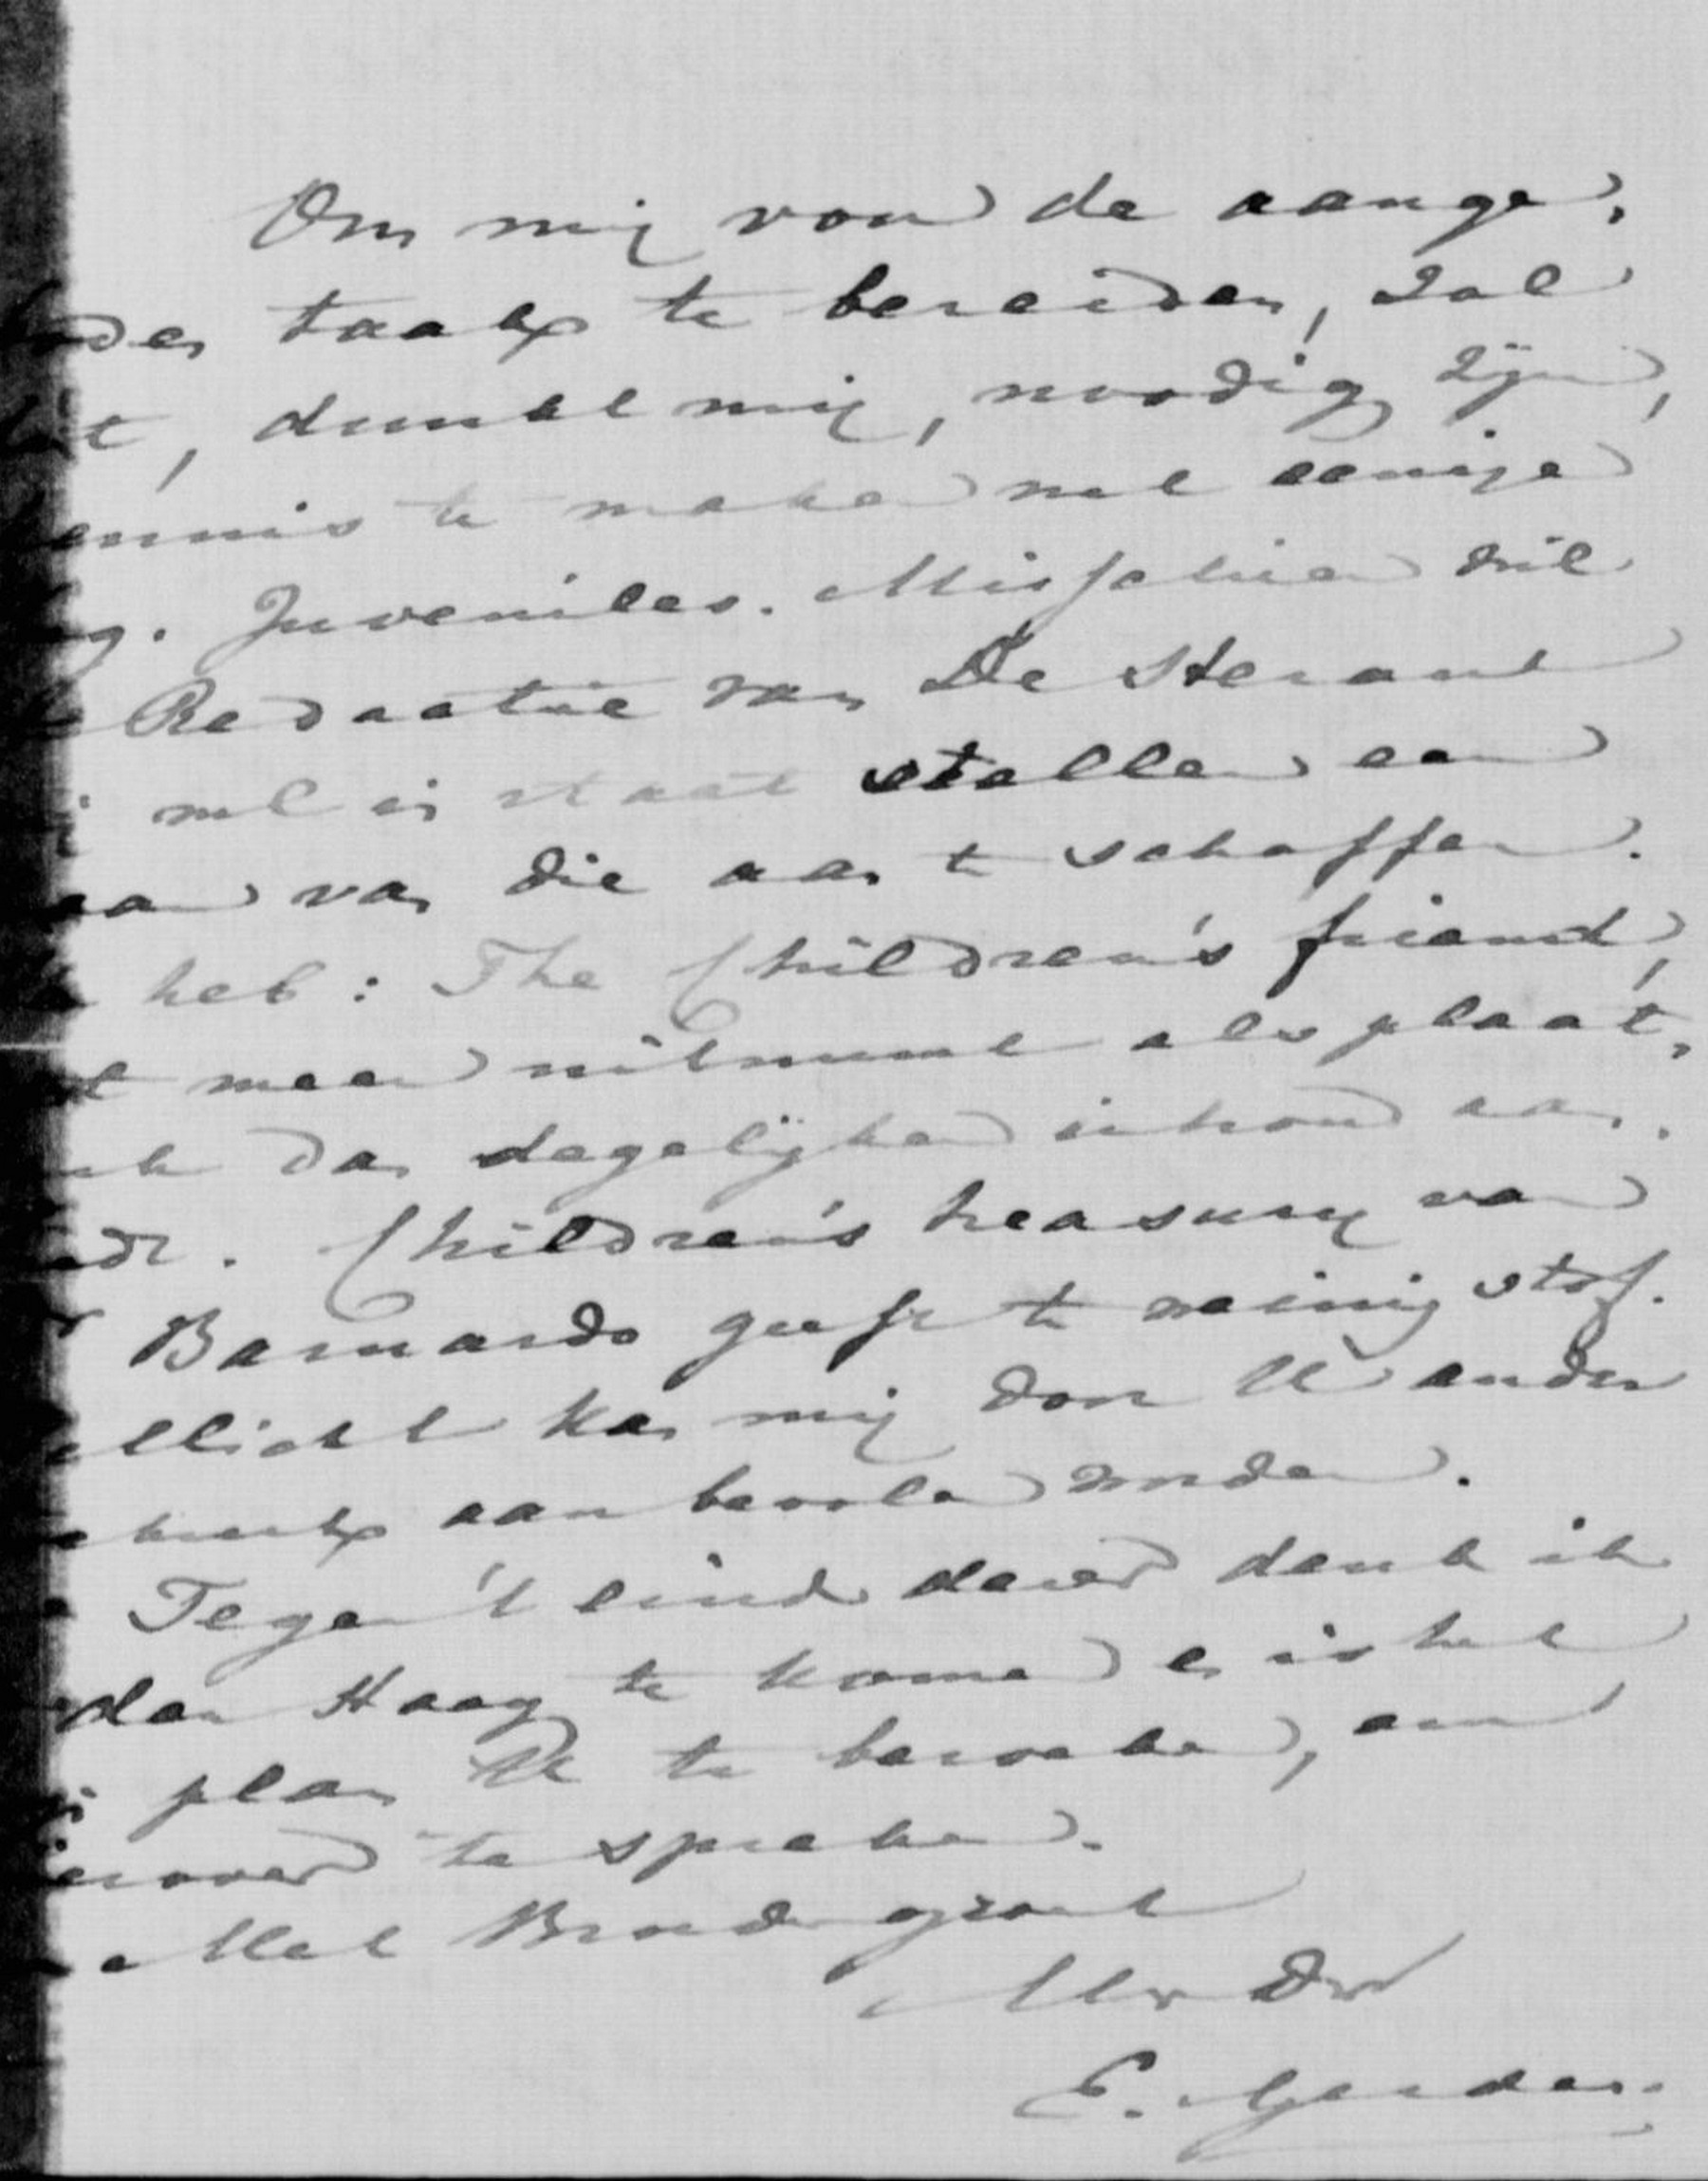 Om mij voor de aange-
den taak te bereiden, zal
t, dunkt mij, noodig zijn,
ennis te maken met eenige
g. Juveniles. Misschien wil
Redaktie van De Heraut
mij in staat stellen een
van die aan te schaffen.
heb: The Children's friend,
t meer uitmunt als plaat-
dan degelijken inhoud aan.
Children's treasury van
Barnardo geeft te weinig stof.
llicht kan mij door U ander
werk aanbevolen worden.
Tegen 't eind dezer denk ik
den Haag te komen en is het
plan U te bezoeken, om
erover te spreken.
Met Broedergroet
Uw Dw
E. Gerdes.